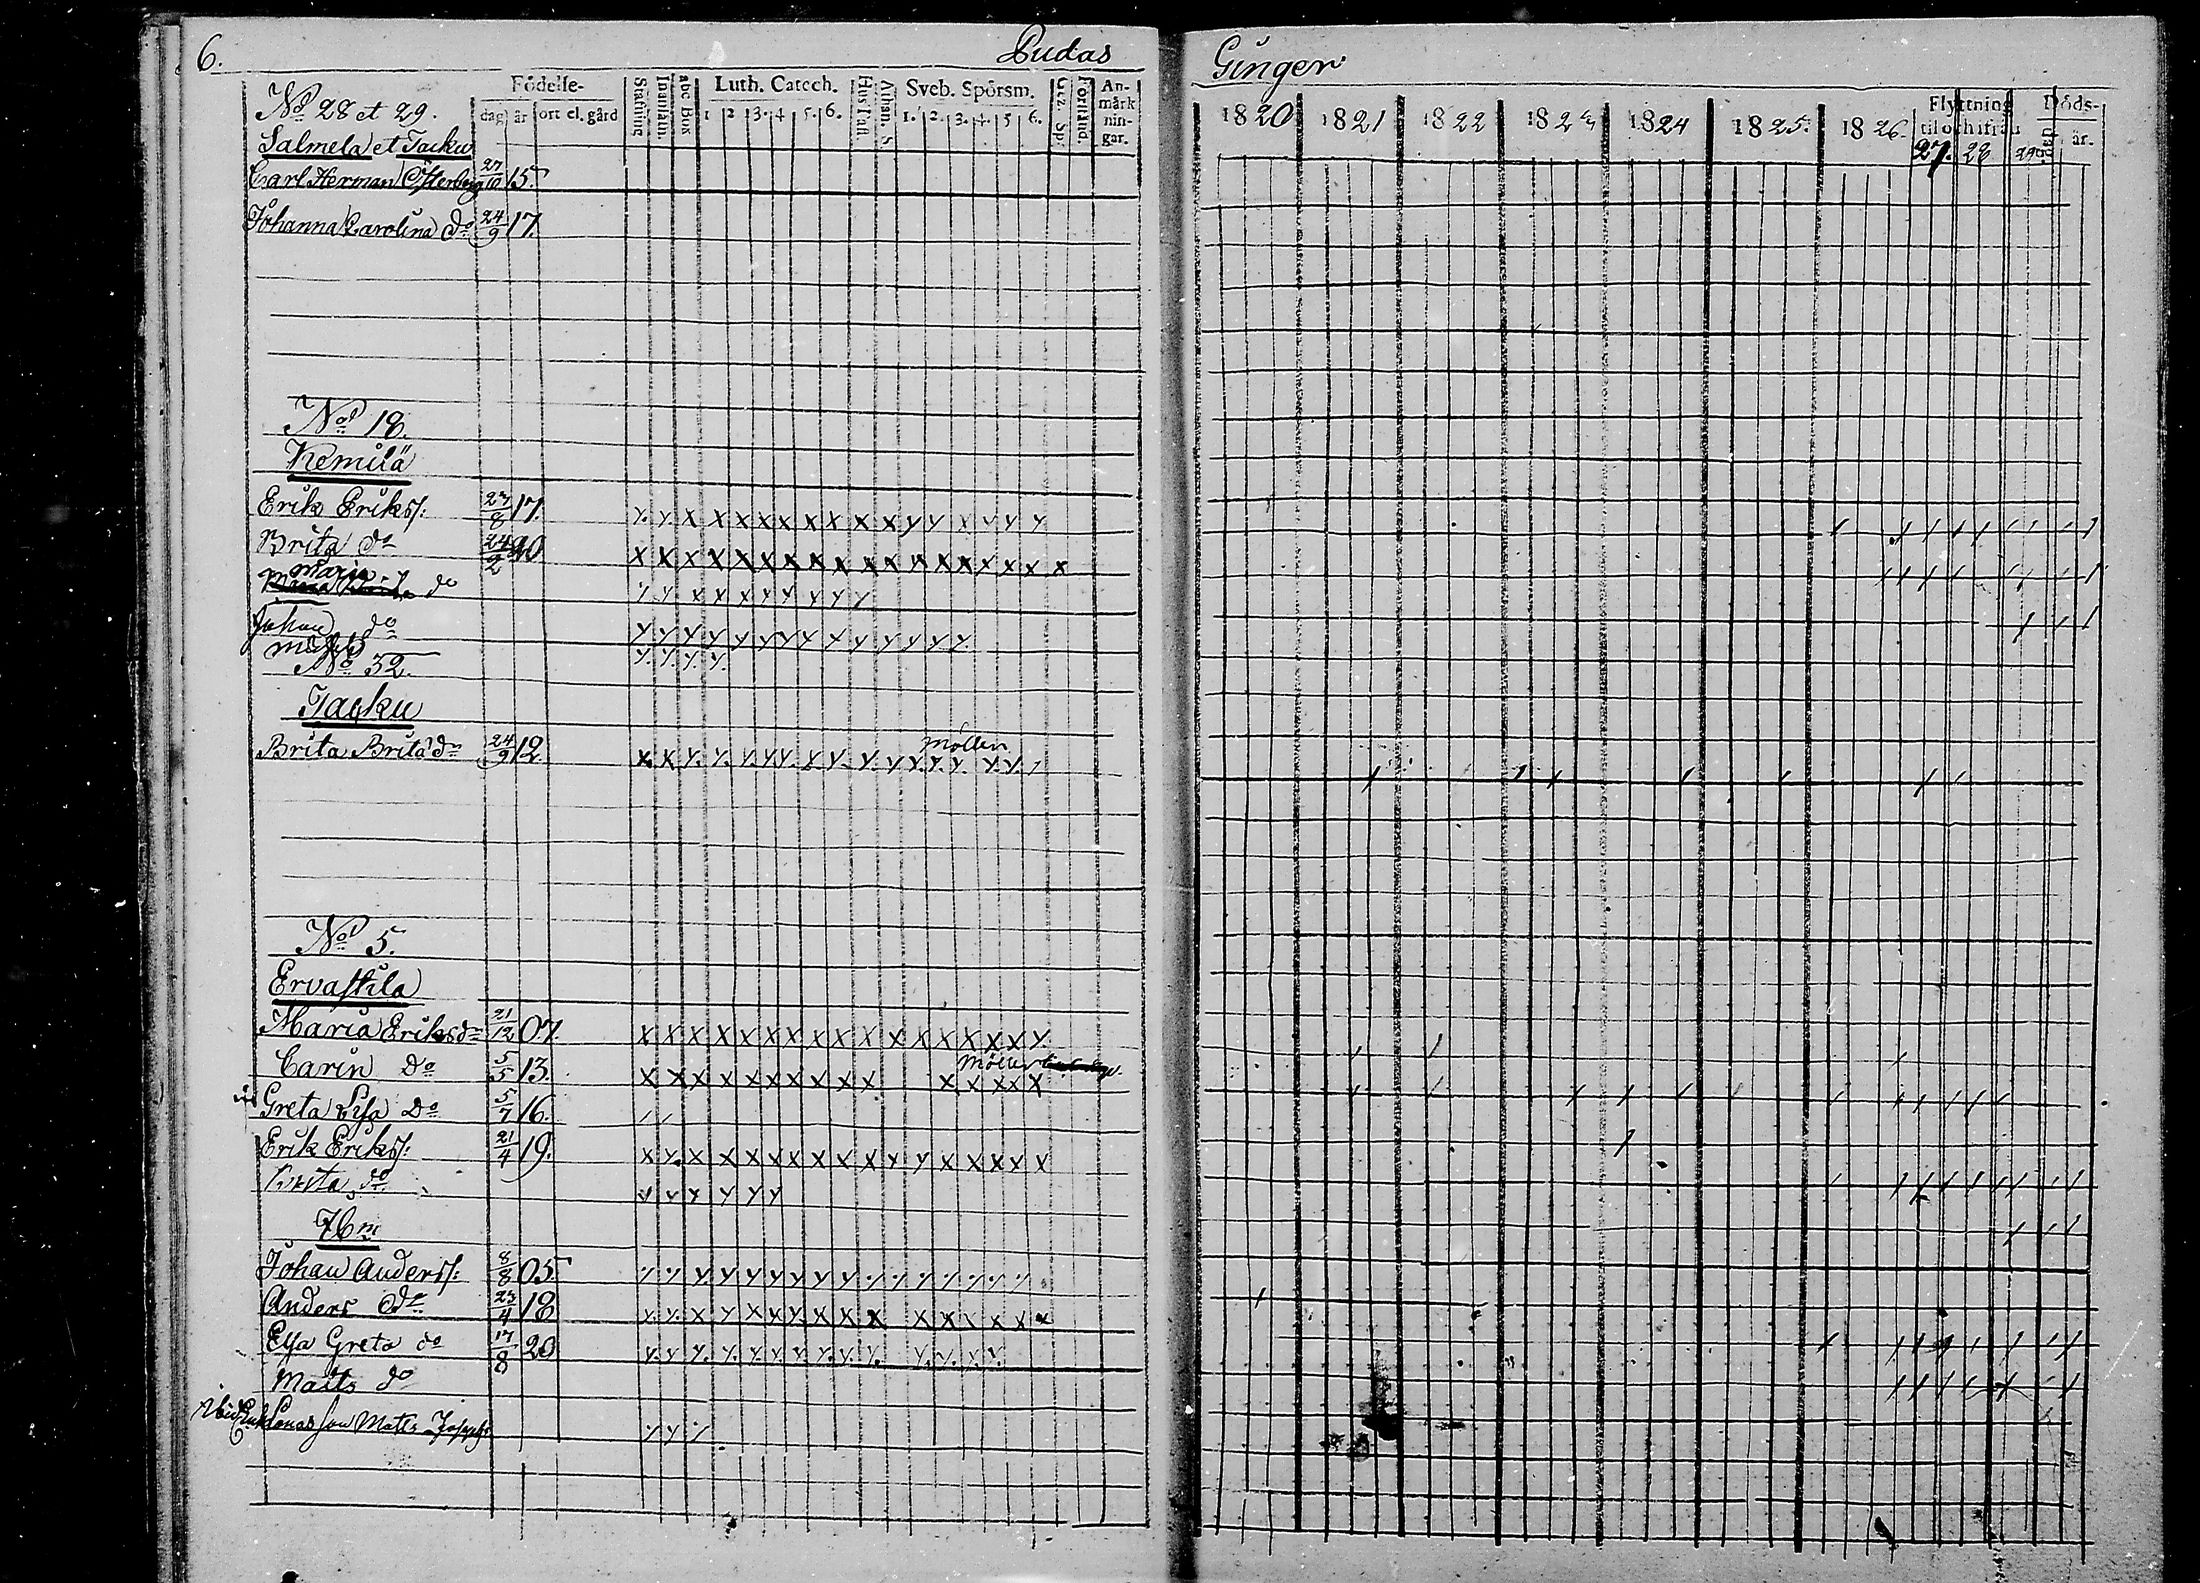 6. Pudas
Födelse-
dag år ort el. gård
Stafning
Innanläsn.
abc Bok
Luth. Catech.
1 2 3. 4 5. 6.
Sveb. Spörsm.
1. 2. 3. 4. 5 6.
An-
märk
nin-
gar.
No 28 et 29.
Salmela et Tacku
Carl Herman Österberg 27/10 15.
Johanna Carolina do 24/9 17.
No 18.
Kemilä
Erik Eriks/: 23/8 17.
Brita do 24/2 20
Maria do
Johan do
No 32.
Tacku
Brita Brita do 24/9 12.
Möllen
No 5.
Ervastila
Maria Eriksdr 21/12 07.
Carin do 5/5 13.
Greta Lisa do 5/7 16.
Erik Eriks/: 21/4 19.
Brita do
Johan Anders/: 8/8 05.
Anders do 23/4 18
Elsa Greta do 17/8 20
Matts do
son Matts
Ginger
1820 1821 1822 1823 1824 1825. 1826.
Flyttning
til och ifrån
27. 28 29
Döds-
dag. år.